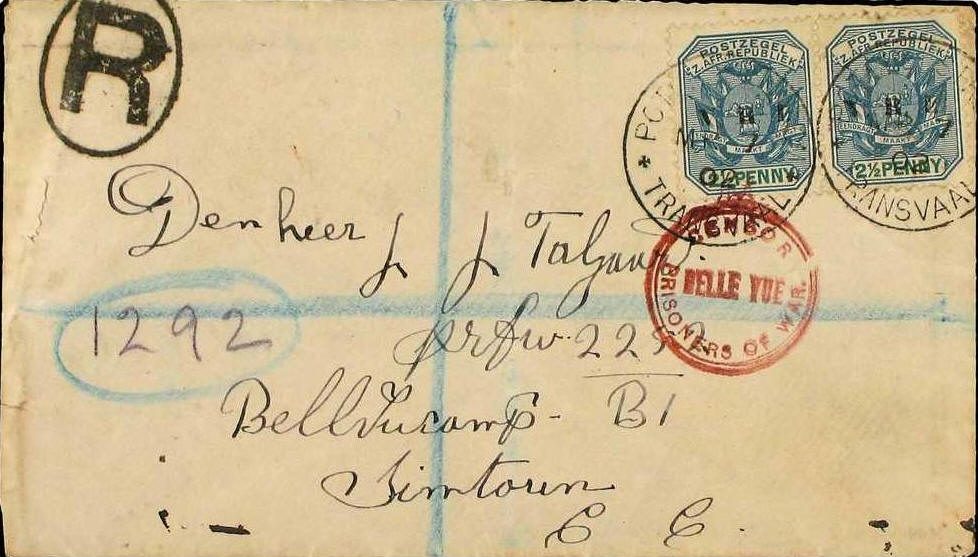 R
POSTZEGEL
Z. AFR. REPUBLIEK
EENDRAGT MAAKT MAGT
2½ PENNY
POSTZEGEL
Z. AFR. REPUBLIEK
EENDRAGT MAAKT MAGT
2½ PENNY
02
TRANSVAAL
TRANSVAAL
CENSOR
BELLE VUE
PRISONERS OF WAR.
Den heer
J J Taljaard.
1292
Bellvucamp - B1
Simtown
C C.